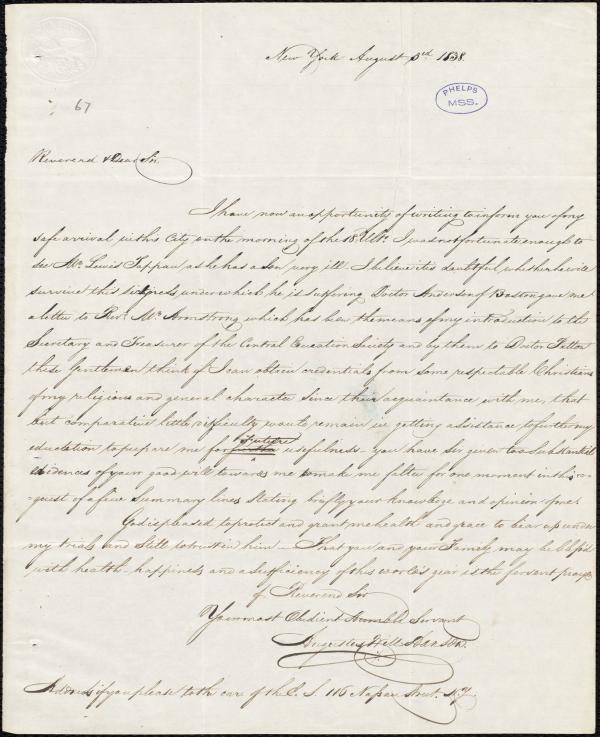 New York August 3rd 1838.
67
PHELPS
MSS.
Reverend & Dear Sir,
I have now an opportunity of writing to inform you of my
safe arrival in this City on the morning of the 18 Ult. I was not fortunate enough to
see Mr. Lewis Tappan as he has a Son very ill. I believe it is doubtful, whether he will
survive this sickness under which he is suffering. Doctor Anderson of Boston gave me
a letter to Revd. Mr. Armstrong which has been the means of my introduction to the
Secretary and Treasurer of the Central Education Society and by them to Doctor
these Gentlemen think if I can obtain credentials from some respectable Christians
of my religious and general character since their acquaintance with me, that
but comparative little difficulty would remain in getting assistance to further my
education to prepare me for future usefulness - you have Sir given too substantial
evidences of your good will towards me to make me falter for one moment in this re-
quest of a few summary lines stating briefly your knowledge and opinion of me.
God is pleased to protect and grant me health and grace to bear up under
my trials and still to trust in him - That you and your Family may be bless'd
with health - happiness and a sufficiency of this world's gear is the fervent prayer
of Reverend Sir
Your most Obedient Humble Servant
Augustus Will Hanson.
Address if you please to the care of the E. S. 116 Nassau Street. N.Y.